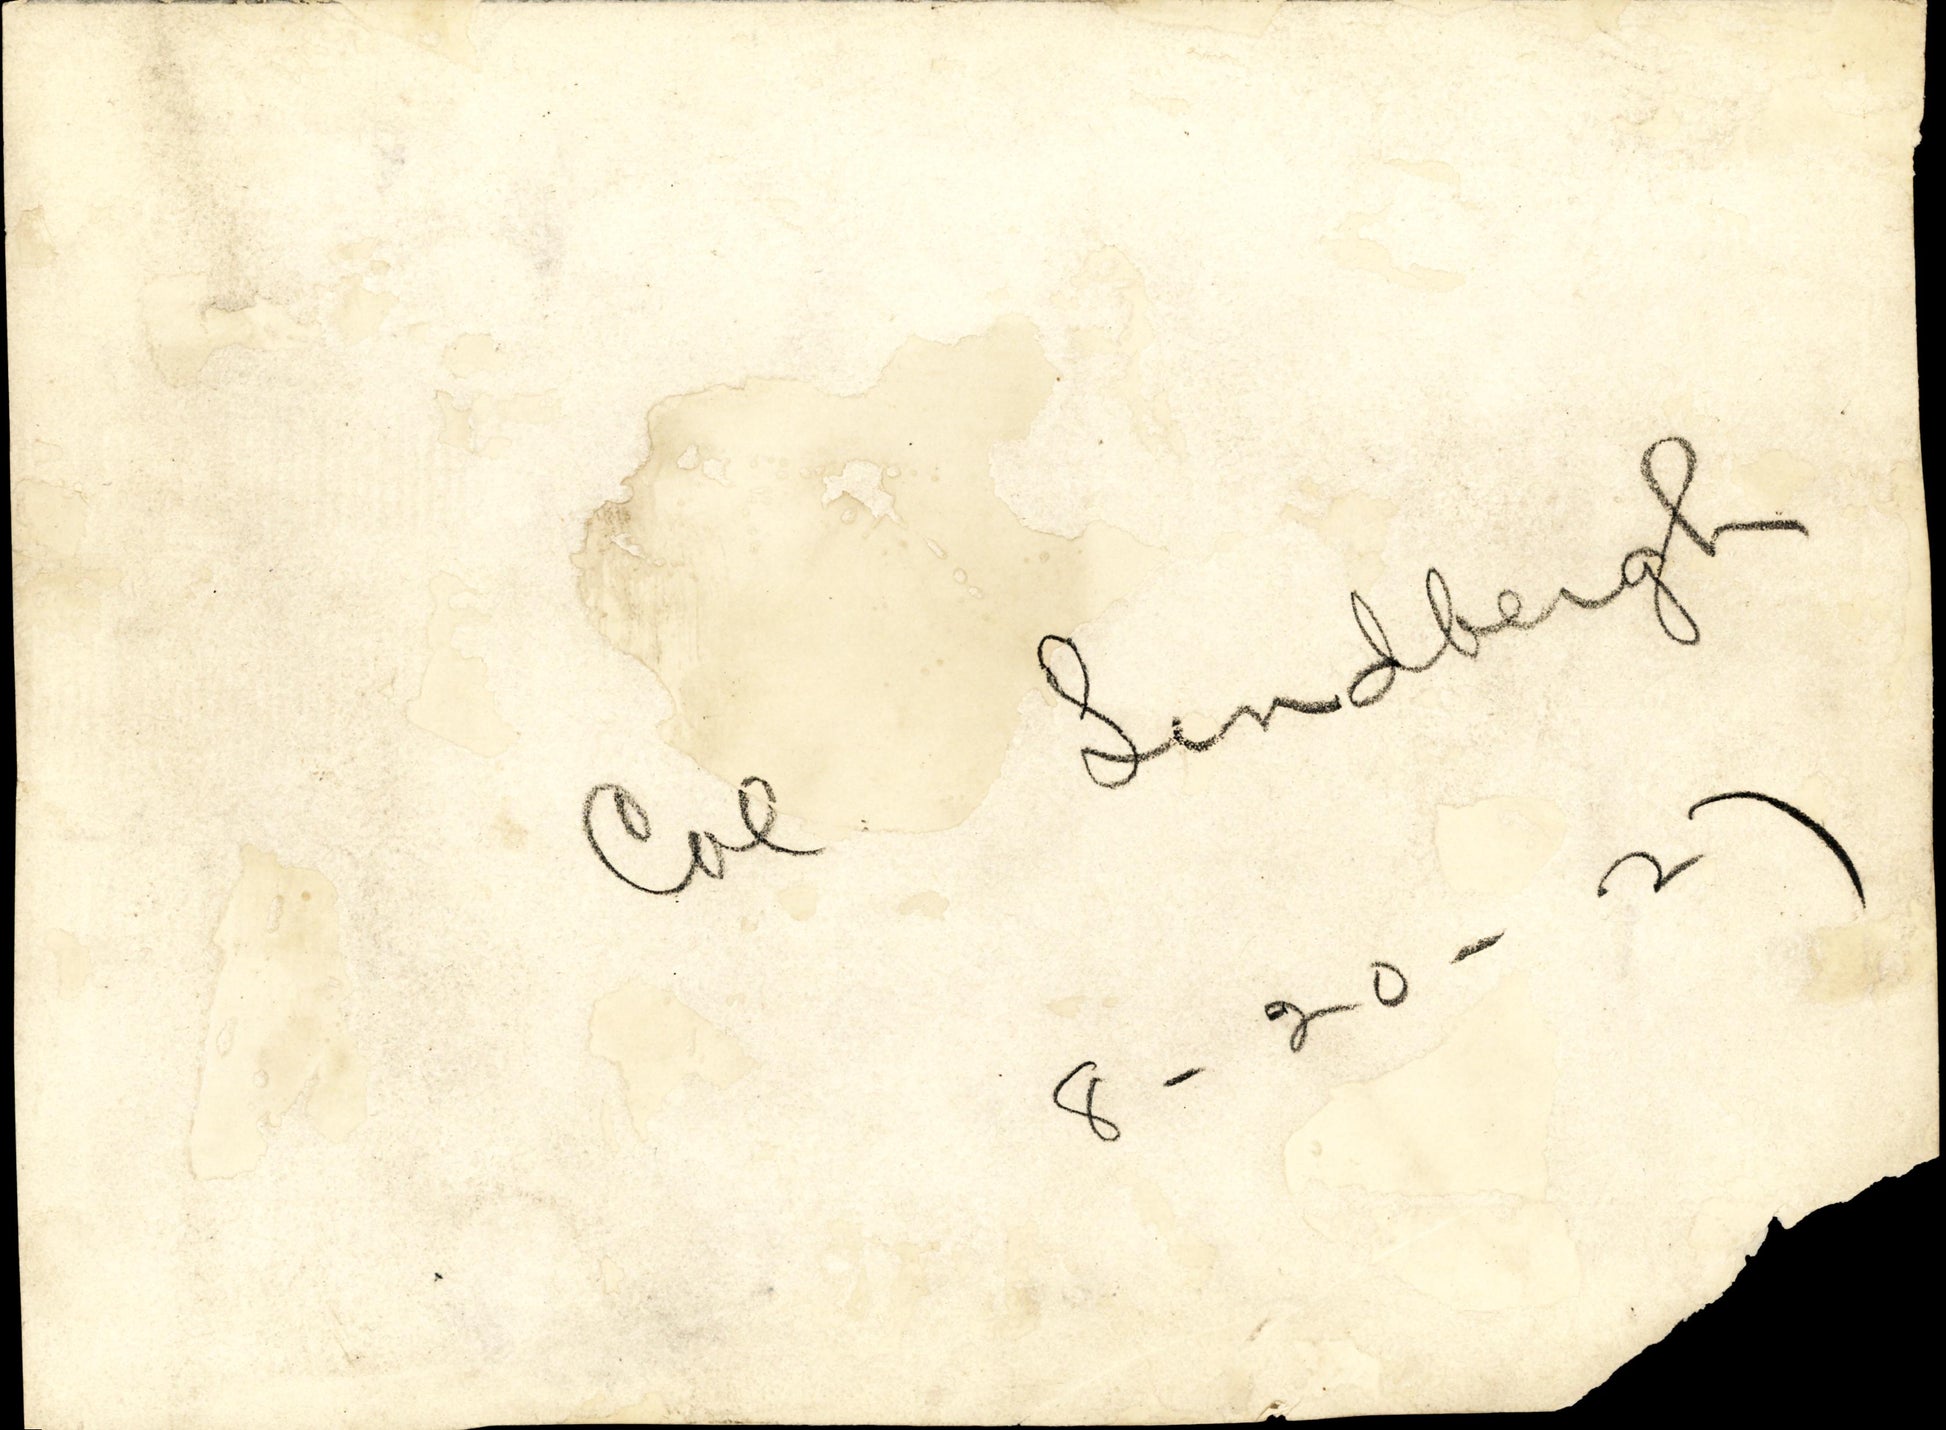 Col Lindbergh
8-20-27